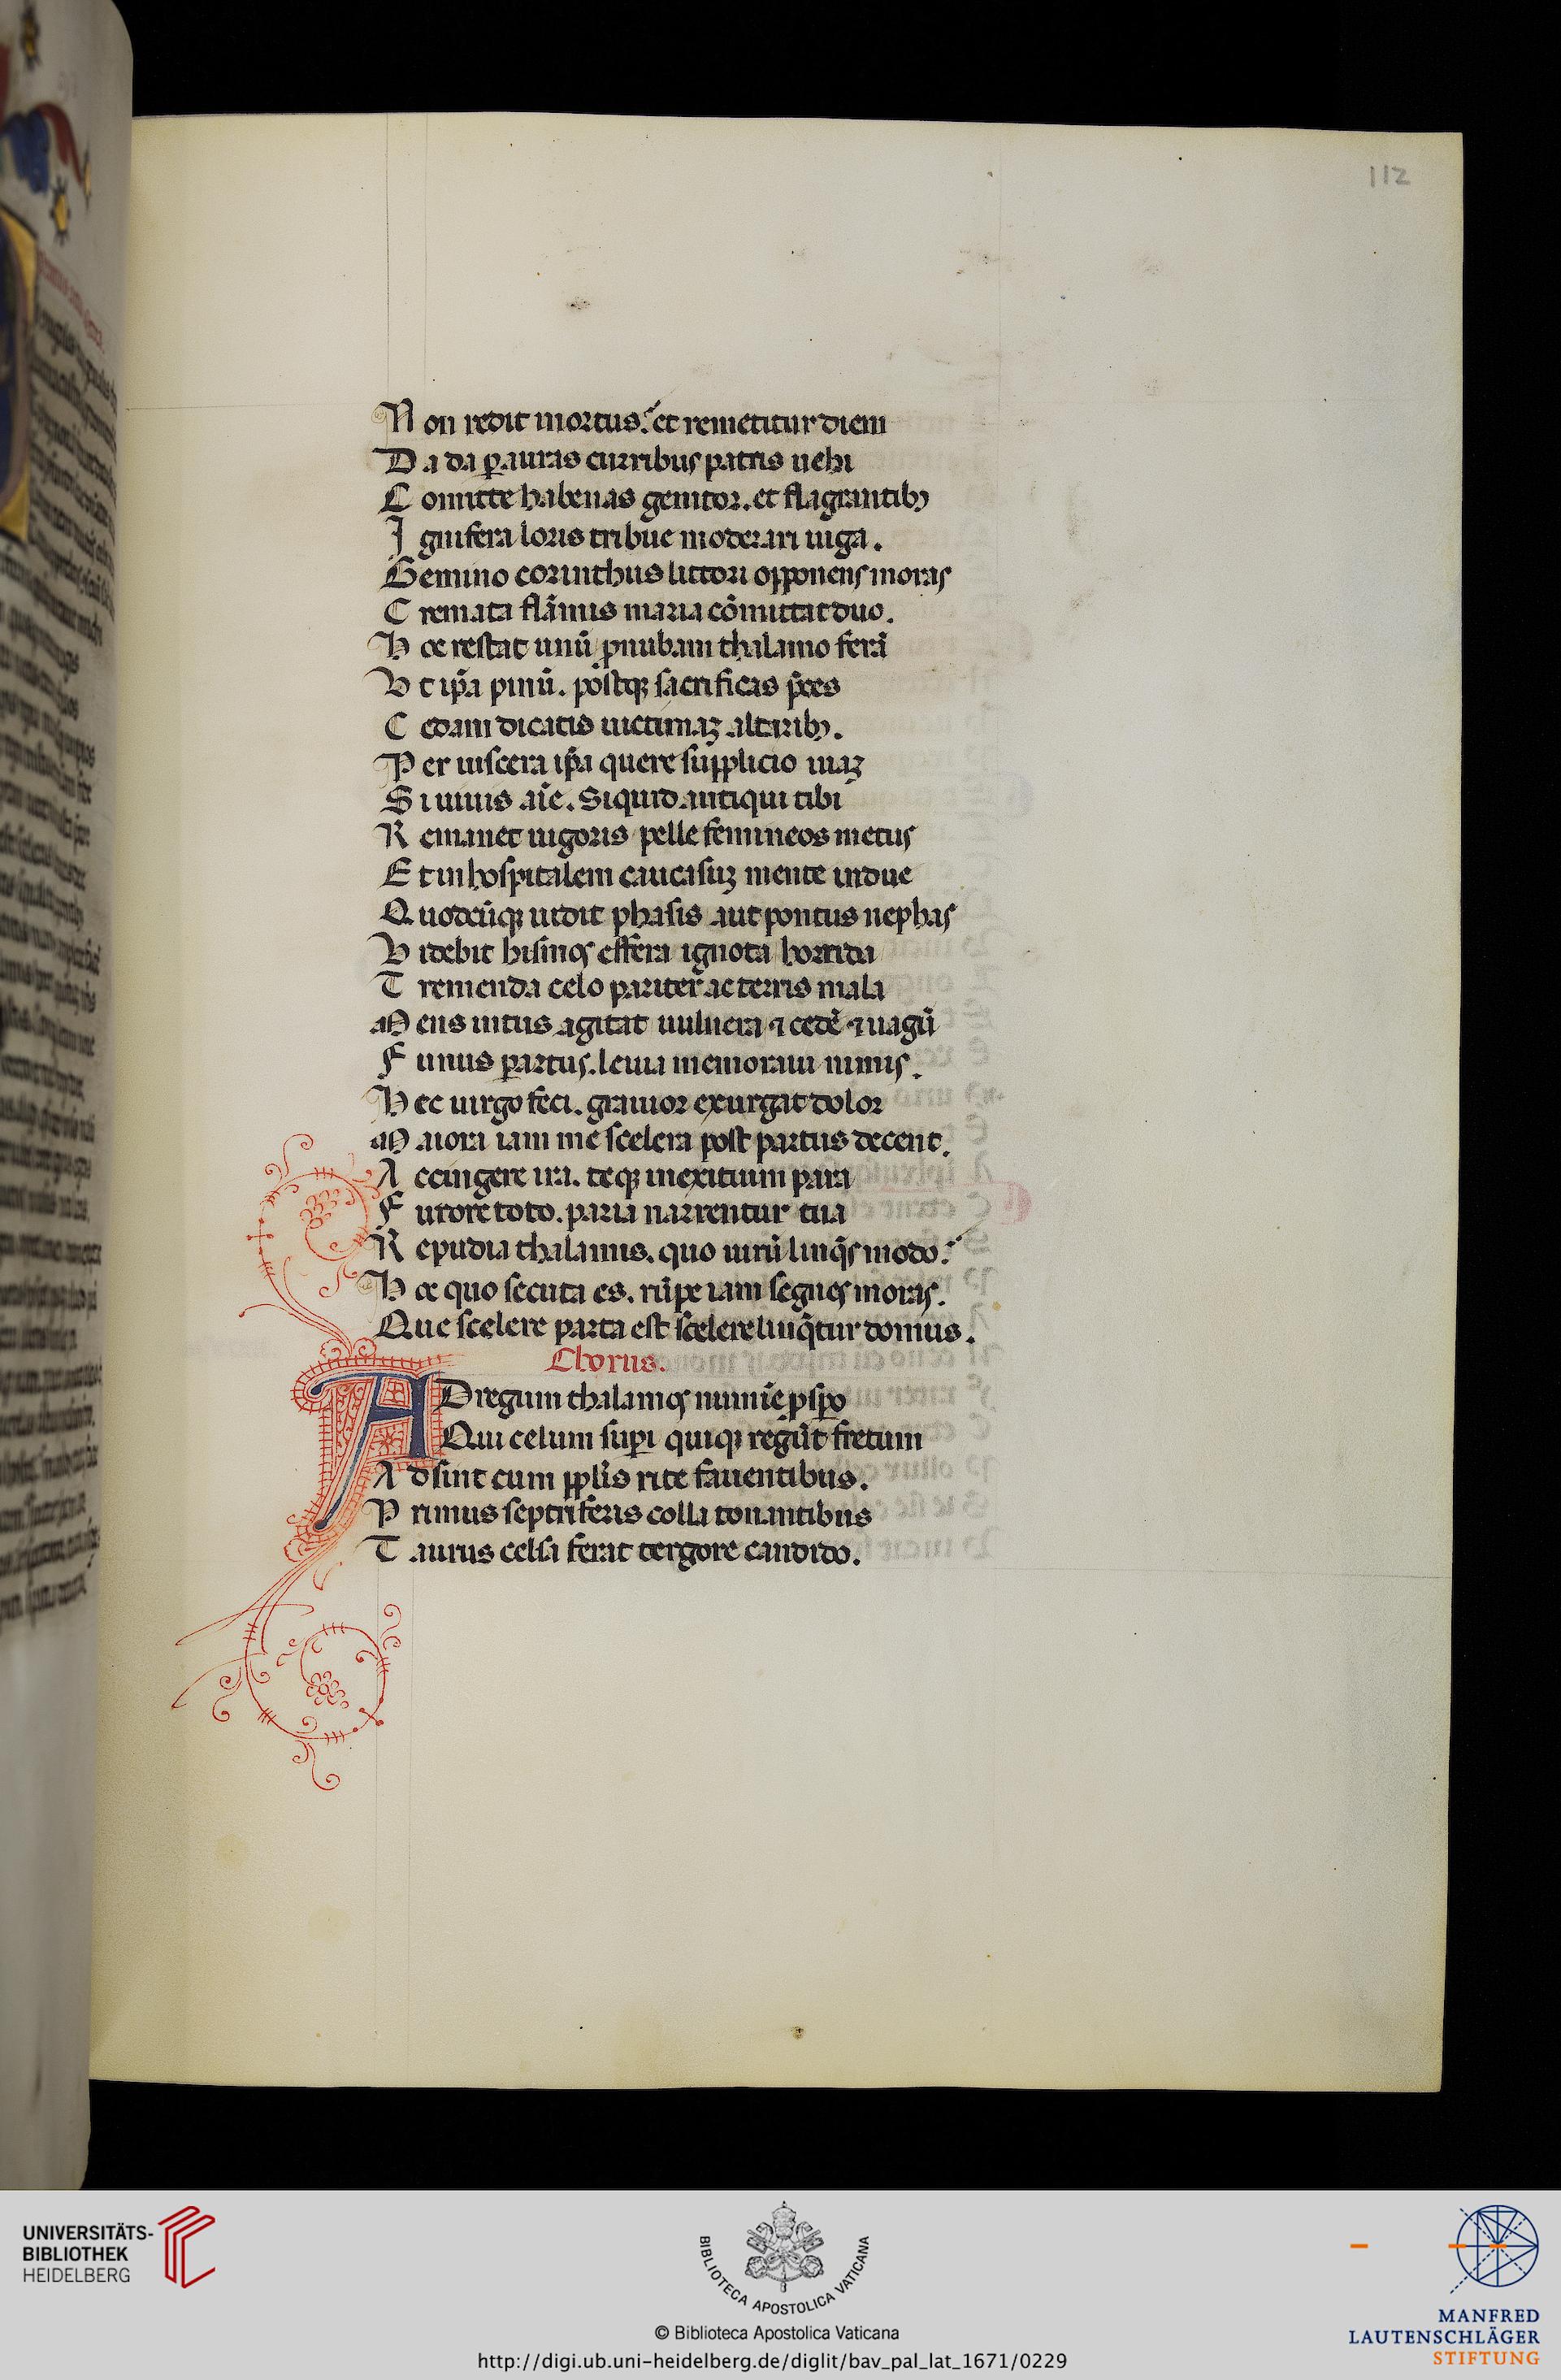 112
Non redit in ortus. et remetitur diem
Da da p auras curribus patris uehi
Comitte habenas genitor. et flagrantibꝫ
Ignifera loris tribue moderari iuga.
Gemino corinthus littori opponens moras
Cremata flāmis maria cōmittat duo.
Hoc restat unū pnubam thalamo ferā
Vt ip̄a pinū. postqꝫ sacrificas p̄ces
Cedam dicatis uictimaꝫ altaribꝫ.
Per uiscera ip̄a quere supplicio uiaꝫ
Si uiuis aīe. Siquid antiqui tibi
Remanet uigoris pelle femineos metus
Et inhospitalem caucasuꝫ mente indue
Quodcūqꝫ uidit phasis aut pontus nephas
Videbit hismos effera ignota horrida
Tremenda celo pariter ac terris mala
Mens intus agitat uulnera ⁊ cedē ⁊ uagū
Funus p artus. leuia memoraui nimis.
Hec uirgo feci. grauior exurgat dolor
Maiora iam me scelera post partus decent.
Accingere ira. teqꝫ in exitium para
Furore toto. paria narrentur tua
Repudia thalamis. quo uirū linq̄s modo.
Hoc quo secuta es. rūpe iam segnes moras.
Que scelere parta est scelere linq̄tur domus.
Chorus.
ADregum thalamos numīe pspo
Qui celum supi quiqꝫ regūt fretum
Adsint cum pplīs rite fauentibus.
Primus sceptriferis colla tonantibus
Taurus celsa ferat tergore candido.
UNIVERSITÄTS-
BIBLIOTHEK
HEIDELBERG
BIBLIOTECA APOSTOLICA VATICANA
© Biblioteca Apostolica Vaticana
http://digi.ub.uni-heidelberg.de/diglit/bav_pal_lat_1671/0229
MANFRED
LAUTENSCHLÄGER
STIFTUNG